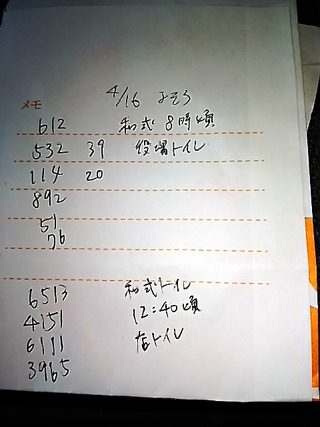 4/16 よそう
メモ
612 和式 8時頃
532 39 役場トイレ
114 20
892
51
76
6513 和式トイレ
4151 12:40頃
6111 店トイレ
3965